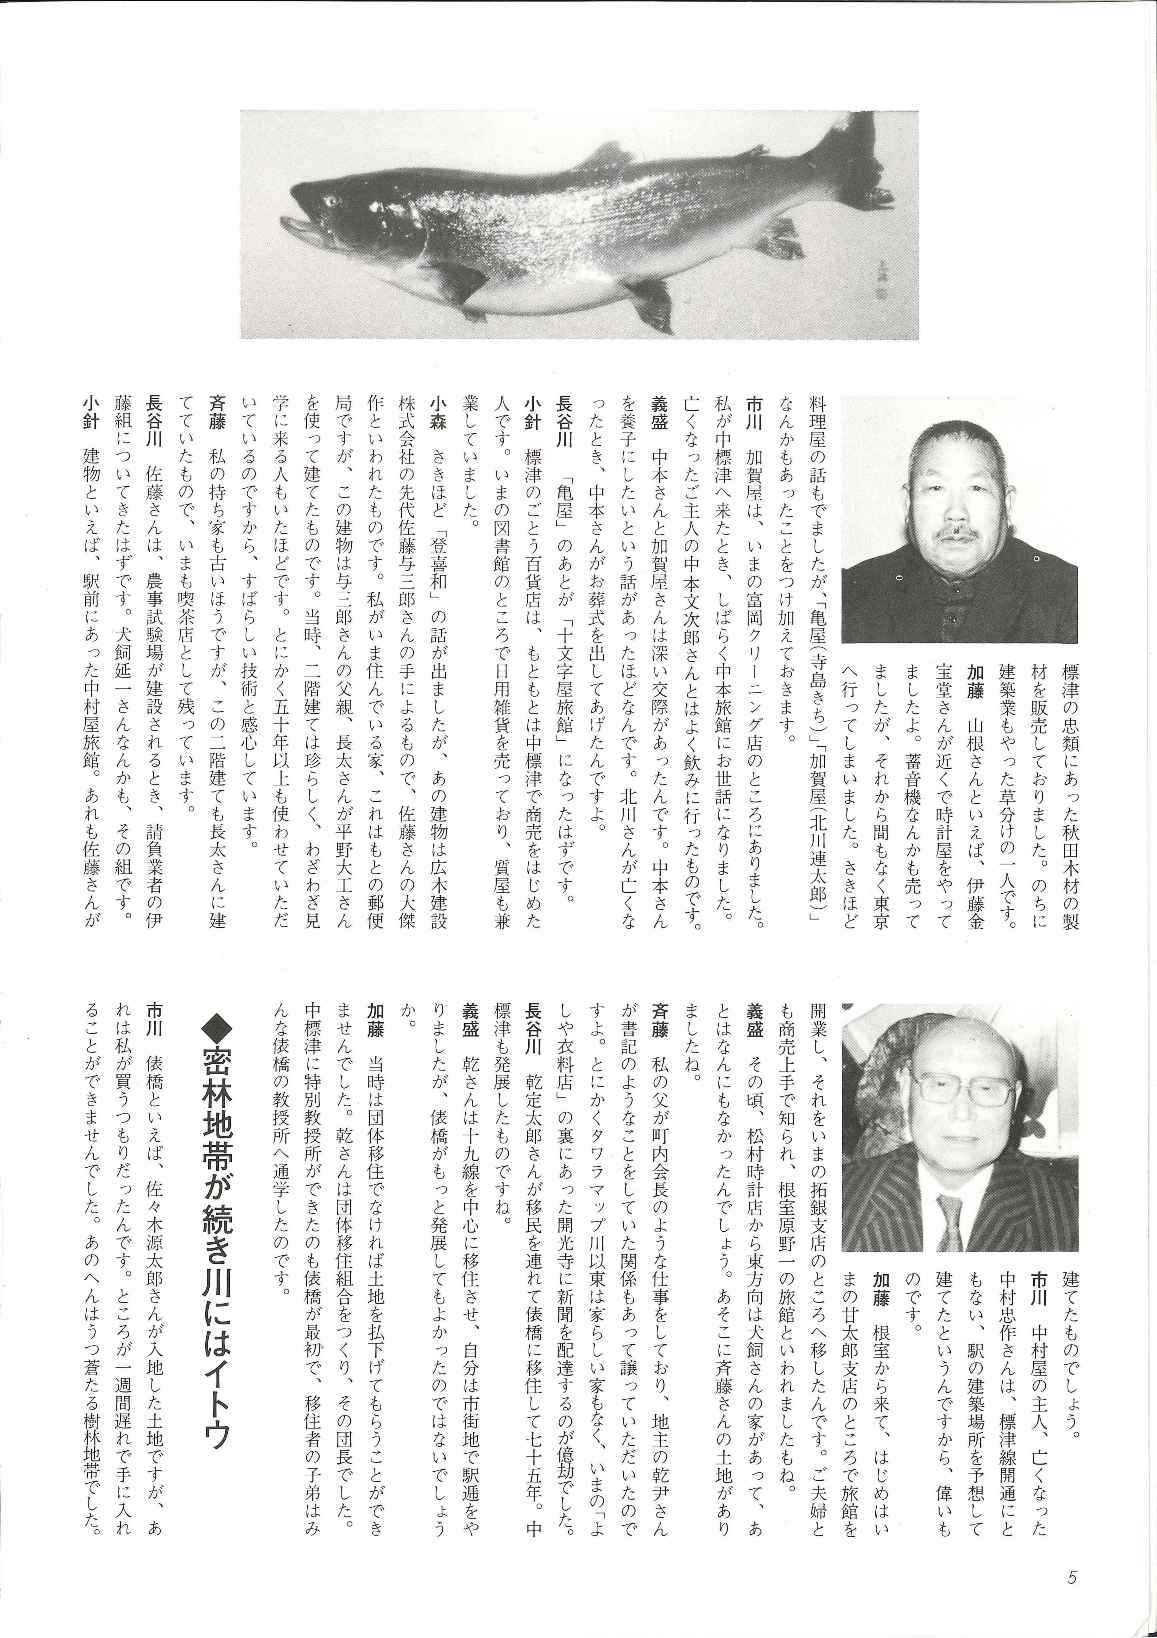 標津の忠類にあった秋田木材の製
材を販売しておりました。のちに
建築業もやった草分けの一人です。
加藤　山根さんといえば、伊藤金
宝堂さんが近くで時計屋をやって
ましたよ。蓄音機なんかも売って
ましたが、それから間もなく東京
へ行ってしまいました。さきほど
料理屋の話もでましたが、「亀屋(寺島きち)」「加賀屋(北川連太郎)」
なんかもあったことをつけ加えておきます。
市川　加賀屋は、いまの富岡クリーニング店のところにありました。
私が中標津へ来たとき、しばらく中本旅館にお世話になりました。
亡くなったご主人の中本文次郎さんとはよく飲みに行ったものです。
義盛　中本さんと加賀屋さんは深い交際があったんです。中本さん
を養子にしたいという話があったほどなんです。北川さんが亡くな
ったとき、中本さんがお葬式を出してあげたんですよ。
長谷川　「亀屋」のあとが「十文字屋旅館」になったはずです。
小針　標津のごとう百貨店は、もともとは中標津で商売をはじめた
人です。いまの図書館のところで日用雑貨を売っており、質屋も兼
業していました。
小森　さきほど「登喜和」の話が出ましたが、あの建物は広木建設
株式会社の先代佐藤与三郎さんの手によるもので、佐藤さんの大傑
作といわれたものです。私がいま住んでいる家、これはもとの郵便
局ですが、この建物は与三郎さんの父親、長太さんが平野大工さん
を使って建てたものです。当時、二階建ては珍らしく、わざわざ見
学に来る人もいたほどです。とにかく五十年以上も使わせていただ
いているのですから、すばらしい技術と感心しています。
斉藤　私の持ち家も古いほうですが、この二階建ても長太さんに建
てていたもので、いまも喫茶店として残っています。
長谷川　佐藤さんは、農事試験場が建設されるとき、請負業者の伊
藤組についてきたはずです。犬飼延一さんなんかも、その組です。
小針　建物といえば、駅前にあった中村屋旅館。あれも佐藤さんが
建てたものでしょう。
市川　中村屋の主人、亡くなった
中村忠作さんは、標津線開通にと
もない、駅の建築場所を予想して
建てたというんですから、偉いも
のです。
加藤　根室から来て、はじめはい
まの甘太郎支店のところで旅館を
開業し、それをいまの拓銀支店のところへ移したんです。ご夫婦と
も商売上手で知られ、根室原野一の旅館といわれましたもね。
義盛　その頃、松村時計店から東方向は犬飼さんの家があって、あ
とはなんにもなかったんでしょう。あそこに斉藤さんの土地があり
ましたね。
斉藤　私の父が町内会長のような仕事をしており、地主の乾尹さん
が書記のようなことをしていた関係もあって譲っていただいたので
すよ。とにかくタワラマップ川以東は家らしい家もなく、いまの「よ
しや衣料店」の裏にあった開光寺に新聞を配達するのが億劫でした。
長谷川　乾定太郎さんが移民を連れて俵橋に移住して七十五年。中
標津も発展したものですね。
義盛　乾さんは十九線を中心に移住させ、自分は市街地で駅逓をや
りましたが、俵橋がもっと発展してもよかったのではないでしょう
か。
加藤　当時は団体移住でなければ土地を払下げてもらうことができ
ませんでした。乾さんは団体移住組合をつくり、その団長でした。
中標津に特別教授所ができたのも俵橋が最初で、移住者の子弟はみ
んな俵橋の教授所へ通学したのです。
◆密林地帯が続き川にはイトウ
市川　俵橋といえば、佐々木源太郎さんが入地した土地ですが、あ
れは私が買うつもりだったんです。ところが一週間遅れで手に入れ
ることができませんでした。あのへんはうつ蒼たる樹林地帯でした。
5